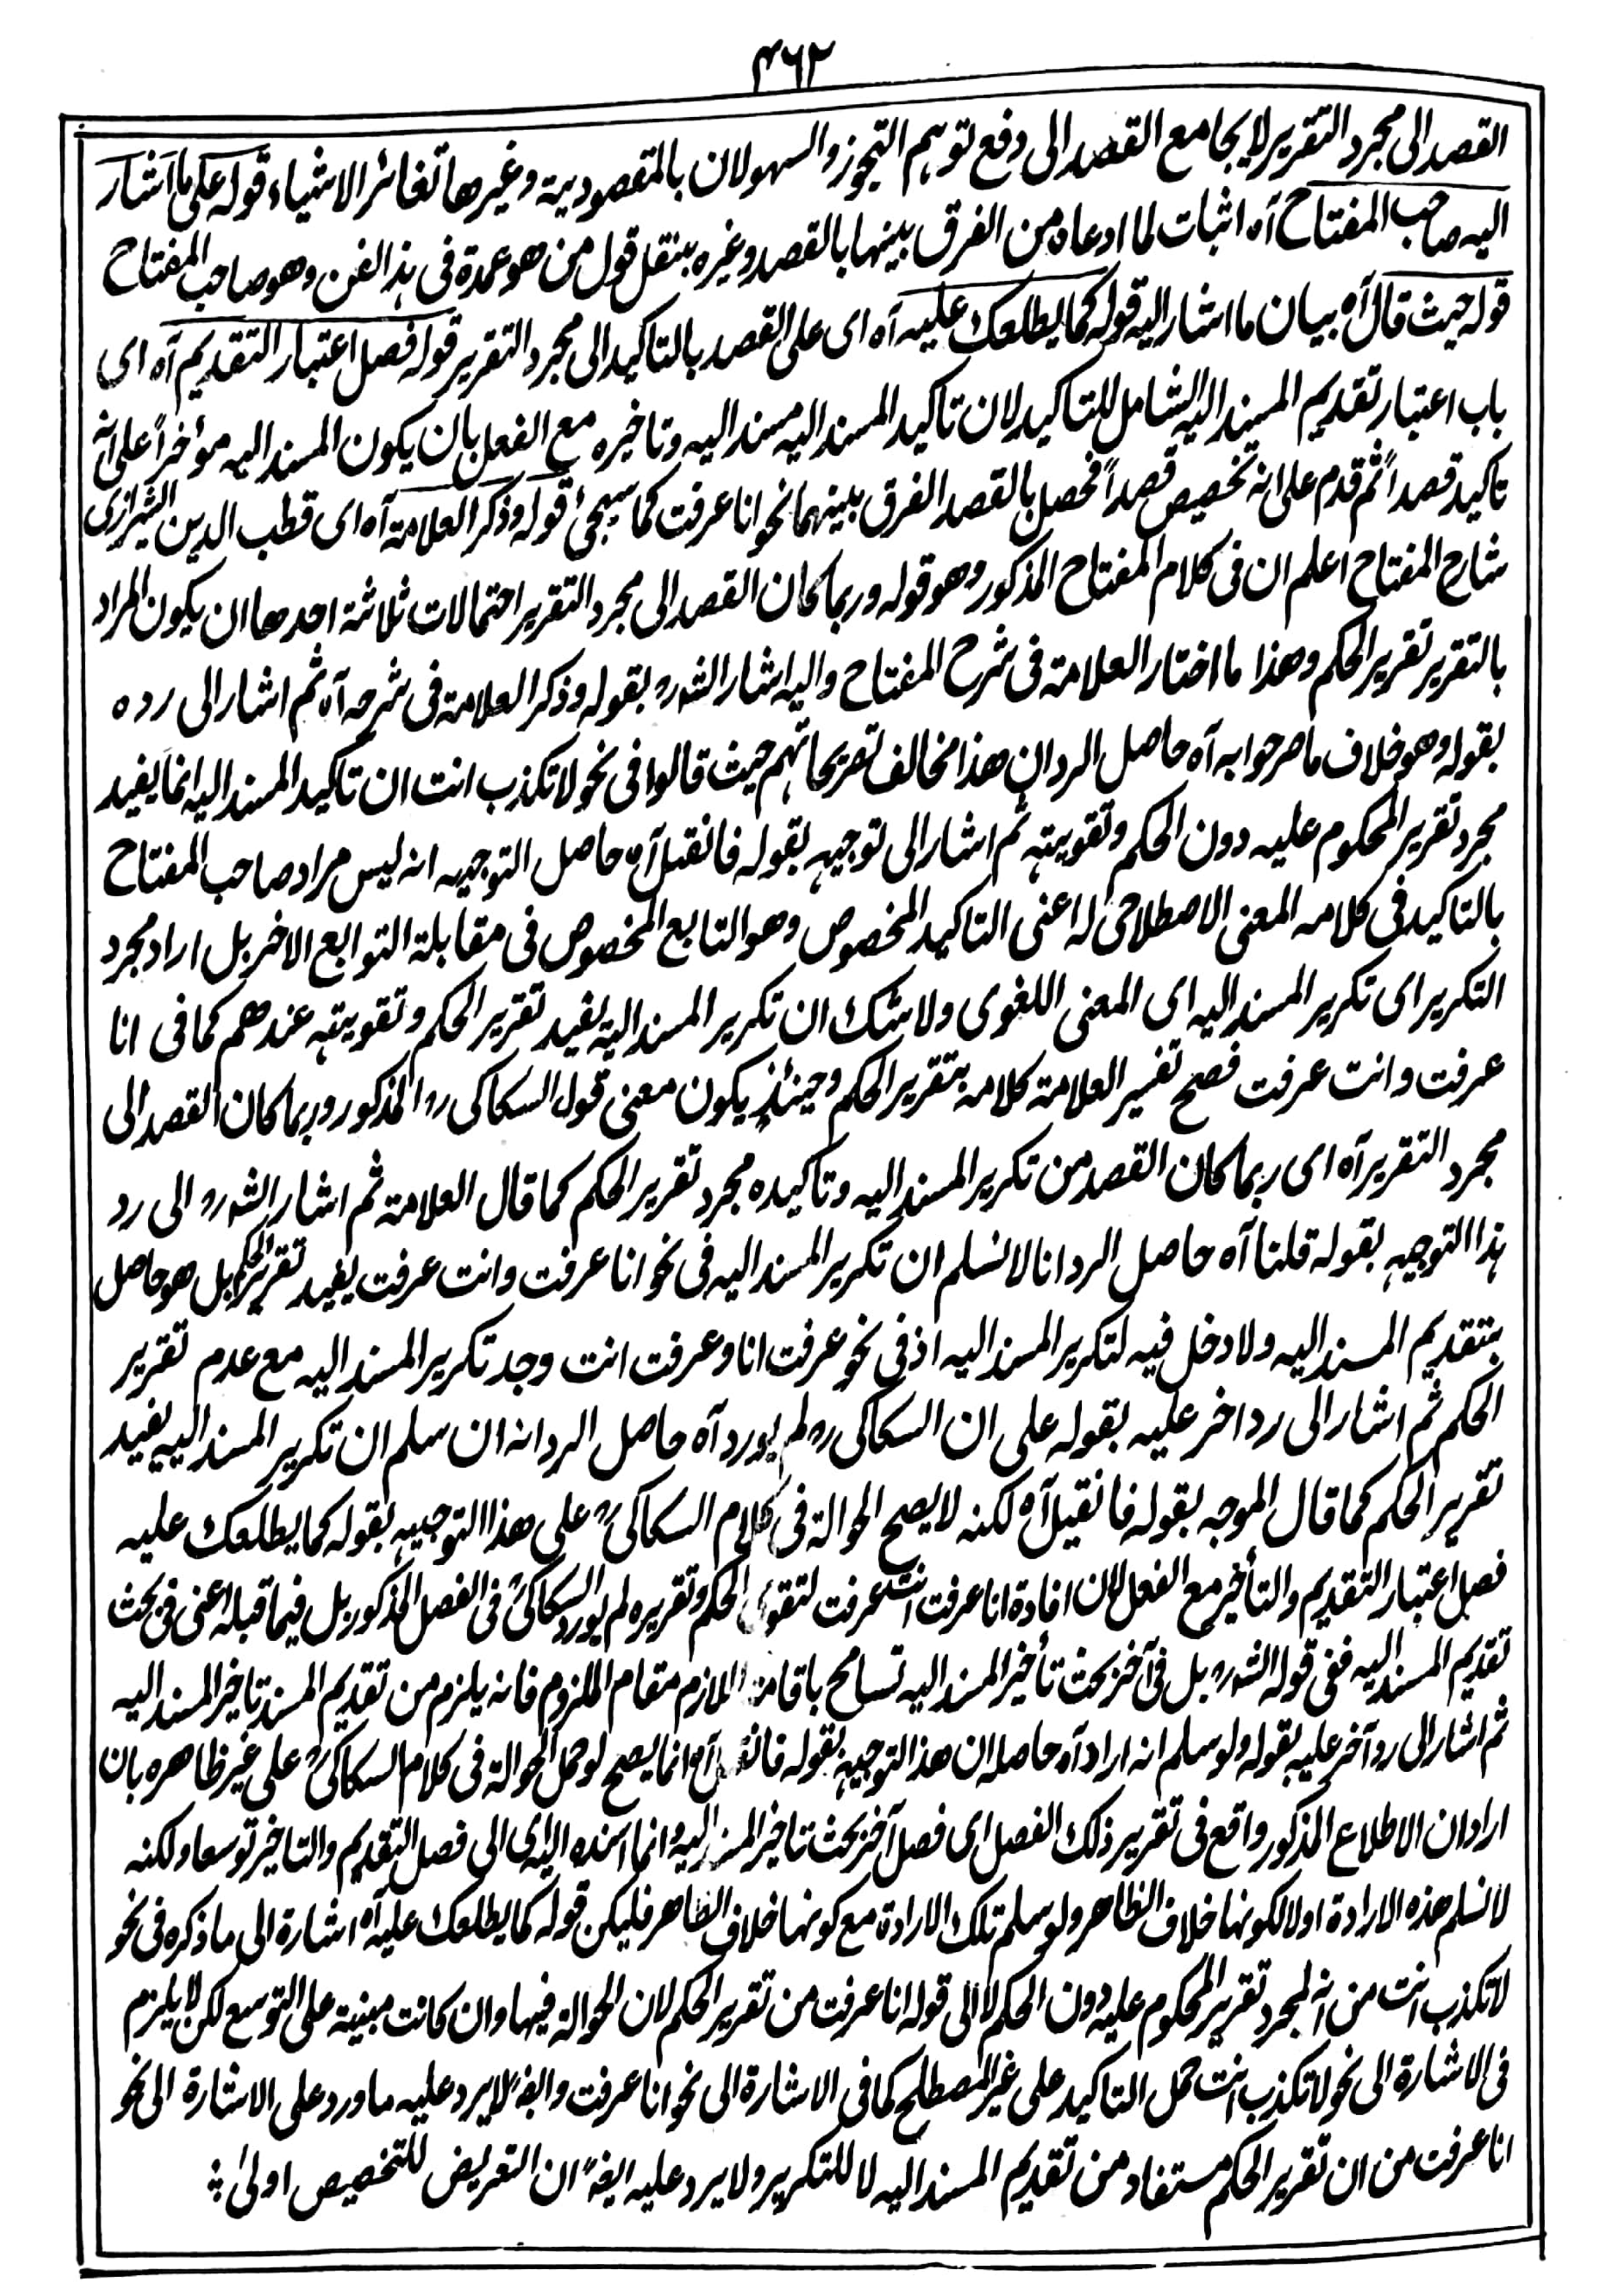 ۴۶۲
القصد الى مجرد التقرير لا يجامع القصد الى دفع توهم التجوز والسهو لان بالمقصودية وغيرها تغائر الاشياء قوله على ما اشار
اليه صاحب المفتاح آه اثبات لما ادعاه من الفرق بينها بالقصد وغيره بنقل قول من هو عمدة فى هذا الفن وهو صاحب المفتاح
قوله حيث قال آه بيان ما اشار اليه قوله كما يطلعك عليه آه اى على القصد بالتاكيد الى مجرد التقرير قوله فصل اعتبار التقديم آه اى
باب اعتبار تقديم المسند اليه الشامل للتاكيد لان تاكيد المسند اليه مسند اليه وتاخيره مع الفعل بان يكون المسند اليه مؤخراً على انه
تاكيد قصداً ثم قدم على انه تخصيص قصداً فحصل بالقصد الفرق بينهما نحو انا عرفت كما سيجئ قوله وذكر العلامة آه اى قطب الدين الشيرازى
شارح المفتاح اعلم ان فى كلام المفتاح المذكور وهو قوله وربما كان القصد الى مجرد التقرير احتمالات ثلاثة احدها ان يكون المراد
بالتقرير تقرير الحكم وهذا ما اختار العلامة فى شرح المفتاح واليه اشار الشهره بقوله وذكر العلامة فى شرحه آه ثم اشار الى رده
بقوله وهو خلاف ما صرحوا به آه حاصل الرد ان هذا مخالف لتصريحاتهم حيث قالوا فى نحو لا تكذب انت ان تاكيد المسند اليه انما يفيد
مجرد تقرير المحكوم عليه دون الحكم وتقويته ثم اشار الى توجيهه بقوله فانقيل آه حاصل التوجيه انه ليس مراد صاحب المفتاح
بالتاكيد فى كلامه المعنى الاصطلاحى له اعنى التاكيد المخصوص وهو التابع المخصوص فى مقابلة التوابع الاخر بل اراد مجرد
التكرير اى تكرير المسند اليه اى المعنى اللغوى ولا شك ان تكرير المسند اليه يفيد تقرير الحكم وتقويته عندهم كما فى انا
عرفت وانت عرفت فصح تفسير العلامة كلامه بتقرير الحكم وحينئذ يكون معنى قول السكاكى ره المذكور وربما كان القصد الى
مجرد التقرير آه اى ربما كان القصد من تكرير المسند اليه وتاكيده مجرد تقرير الحكم كما قال العلامة ثم اشار الشهره الى رد
هذا التوجيه بقوله قلنا آه حاصل الرد انا لا نسلم ان تكرير المسند اليه فى نحو انا عرفت وانت عرفت يفيد تقرير الحكم بل هو حاصل
بتقديم المسند اليه ولا دخل فيه لتكرير المسند اليه اذ فى نحو عرفت انا وعرفت انت وجد تكرير المسند اليه مع عدم تقرير
الحكم ثم اشار الى رد اخر عليه بقوله على ان السكاكى ره لم يورد آه حاصل الرد انه ان سلم ان تكرير المسند اليه يفيد
تقرير الحكم كما قال الموجه بقوله فانقيل آه لكنه لا يصح الحوالة فى كلام السكاكىؒ على هذا التوجيه بقوله كما يطلعك عليه
فصل اعتبار التقديم والتأخير مع الفعل لان افادة انا عرفت انت عرفت لتقوى الحكم وتقريره لم يورد السكاكىؒ فى الفصل المذكور بل فيما قبله اعنى فى بحث
تقديم المسند اليه ففى قوله الشهره بل فى آخر بحث تأخير المسند اليه تسامح باقامة اللازم مقام الملزوم فانه يلزم من تقديم المسند تاخير المسند اليه
ثم اشار الى رد آخر عليه بقوله ولو سلم انه اراد آه حاصله ان هذا التوجيه بقوله فانقيل آه انما يصح لو حمل الحوالة فى كلام السكاكىؒ على غير ظاهره بان
اراد ان الاطلاع المذكور واقع فى تقرير ذلك الفصل اى فصل آخر بحث تاخير المسند اليه وانما اسنده اليه اى الى فصل التقديم والتاخير توسعا ولكنه
لا نسلم هذه الارادة اولا لكونها خلاف الظاهر ولو سلم تلك الارادة مع كونها خلاف الظاهر فليكن قوله كما يطلعك عليه آه اشارة الى ما ذكره فى نحو
لا تكذب انت من انه لمجرد تقرير المحكوم عليه دون الحكم لا الى قوله انا عرفت من تقرير الحكم لان الحوالة فيها وان كانت مبنية على التوسع لكن لا يلزم
فى الاشارة الى نحو لا تكذب انت حمل التاكيد على غير المصطلح كما فى الاشارة الى نحو انا عرفت وايضًا لا يرد عليه ما ورد على الاشارة الى نحو
انا عرفت من ان تقرير الحكم مستفاد من تقديم المسند اليه لا للتكرير ولا يرد عليه ايضًا ان التعريض للتخصيص اولىٰ